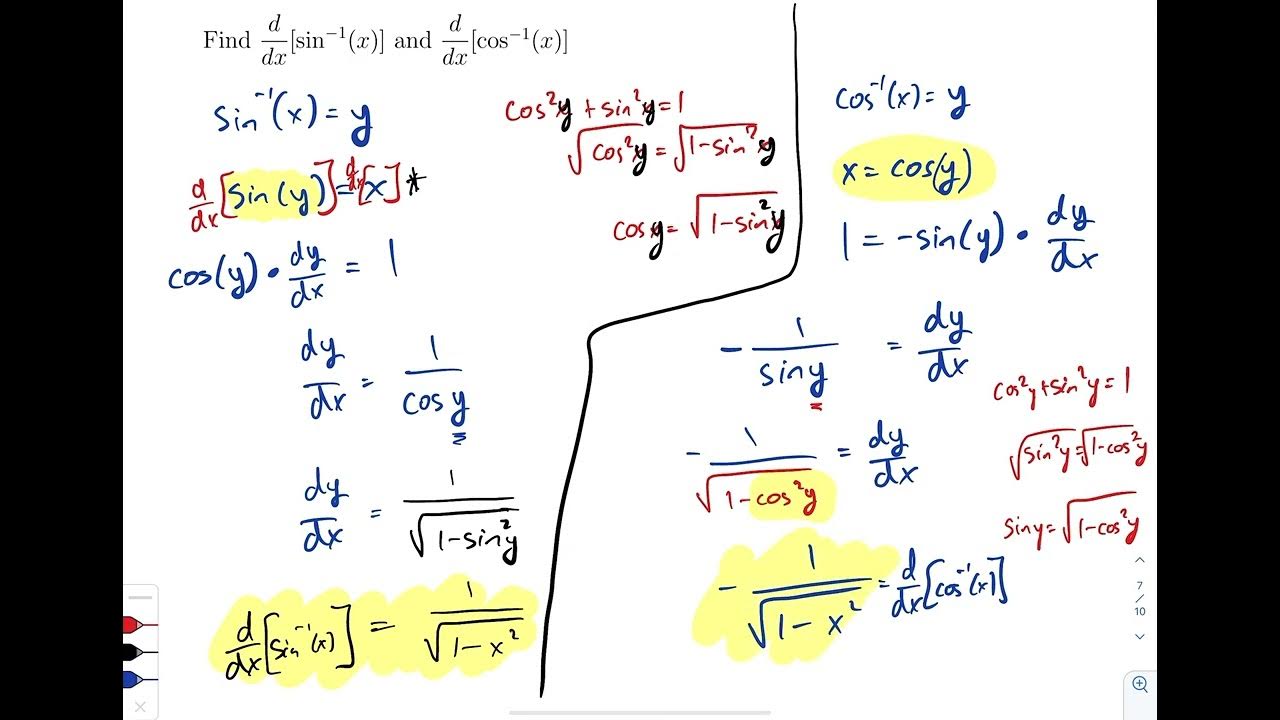 Find d/dx[sin⁻¹(x)] and d/dx[cos⁻¹(x)]
sin⁻¹(x) = y
d/dx[sin(y)] = d/dx[x] *
cos(y) • dy/dx = 1
dy/dx = 1/cos y
dy/dx = 1/√(1-sin²y)
d/dx[sin⁻¹(x)] = 1/√(1-x²)
cos²y + sin²y = 1
√cos²y = √(1-sin²y)
cos y = √(1-sin²y)
cos⁻¹(x) = y
x = cos(y)
1 = -sin(y) • dy/dx
-1/sin y = dy/dx
-1/√(1-cos²y) = dy/dx
-1/√(1-x²) = d/dx[cos⁻¹(x)]
cos²y + sin²y = 1
√sin²y = √(1-cos²y)
sin y = √(1-cos²y)
7
/
10